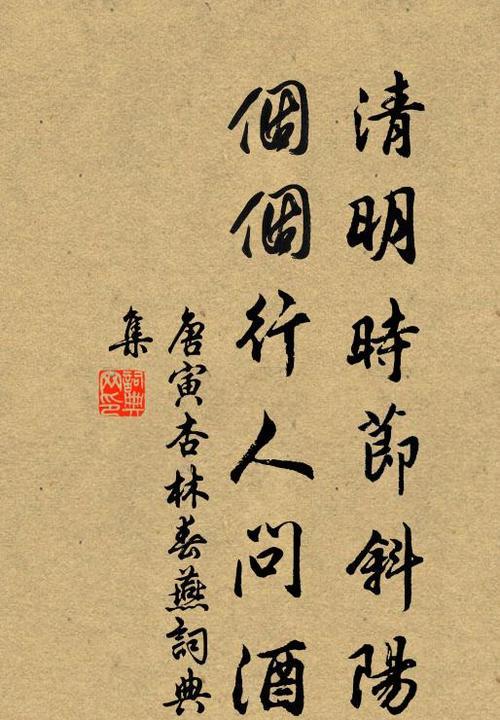 清明時節斜陽
個個行人問酒
唐寅杏林春燕詞典
集
詞典
双印